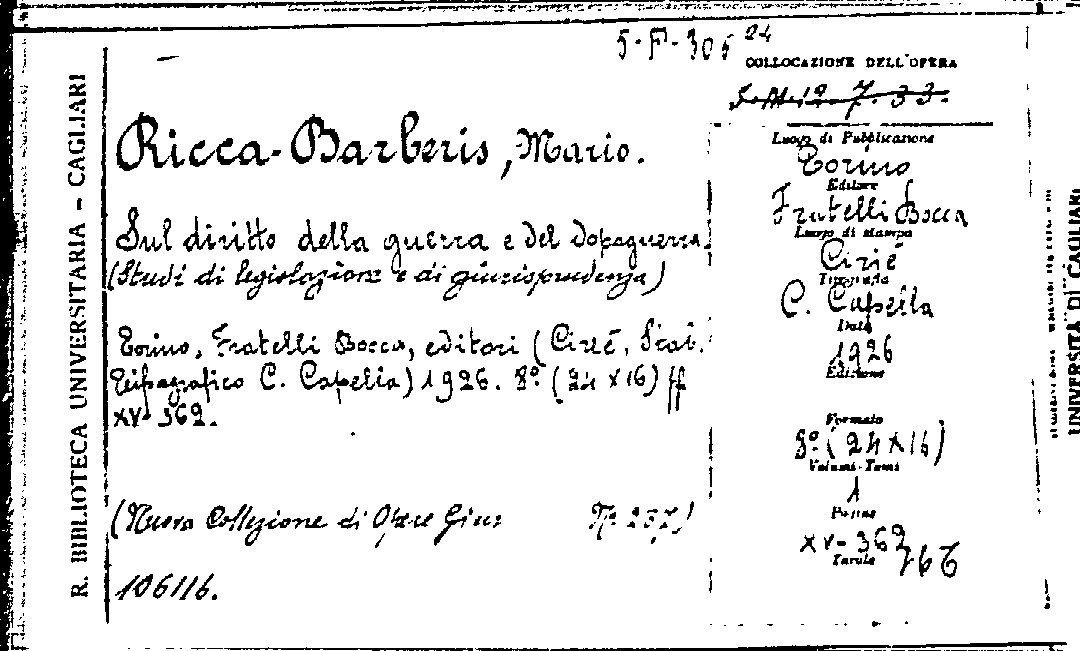 5-F-306 24
COLLOCAZIONE DELL'OPERA
5.M.12.7.33.
R. BIBLIOTECA UNIVERSITARIA - CAGLIARI
Ricca-Barberis, Mario.
Sul diritto della guerra e del dopoguerra.
(Studi di legislazione e di giurisprudenza)
Torino, Fratelli Bocca, editori (Cirié, Stab.
Tipografico C. Capella) 1926. 8º. (24 x 16) ff
XV-362.
(Nuova Collezione di Opere Giur Nº 257)
106116.
Luogo di Pubblicazione
Torino
Editore
Fratelli Bocca
Luogo di stampa
Cirié
Tipografia
C. Capella
Data
1926
Edizione
Formato
8º (24 x 16)
Volumi-Tomi
1
Pagine
XV-362
Tavole
UNIVERSITÀ DI CAGLIARI